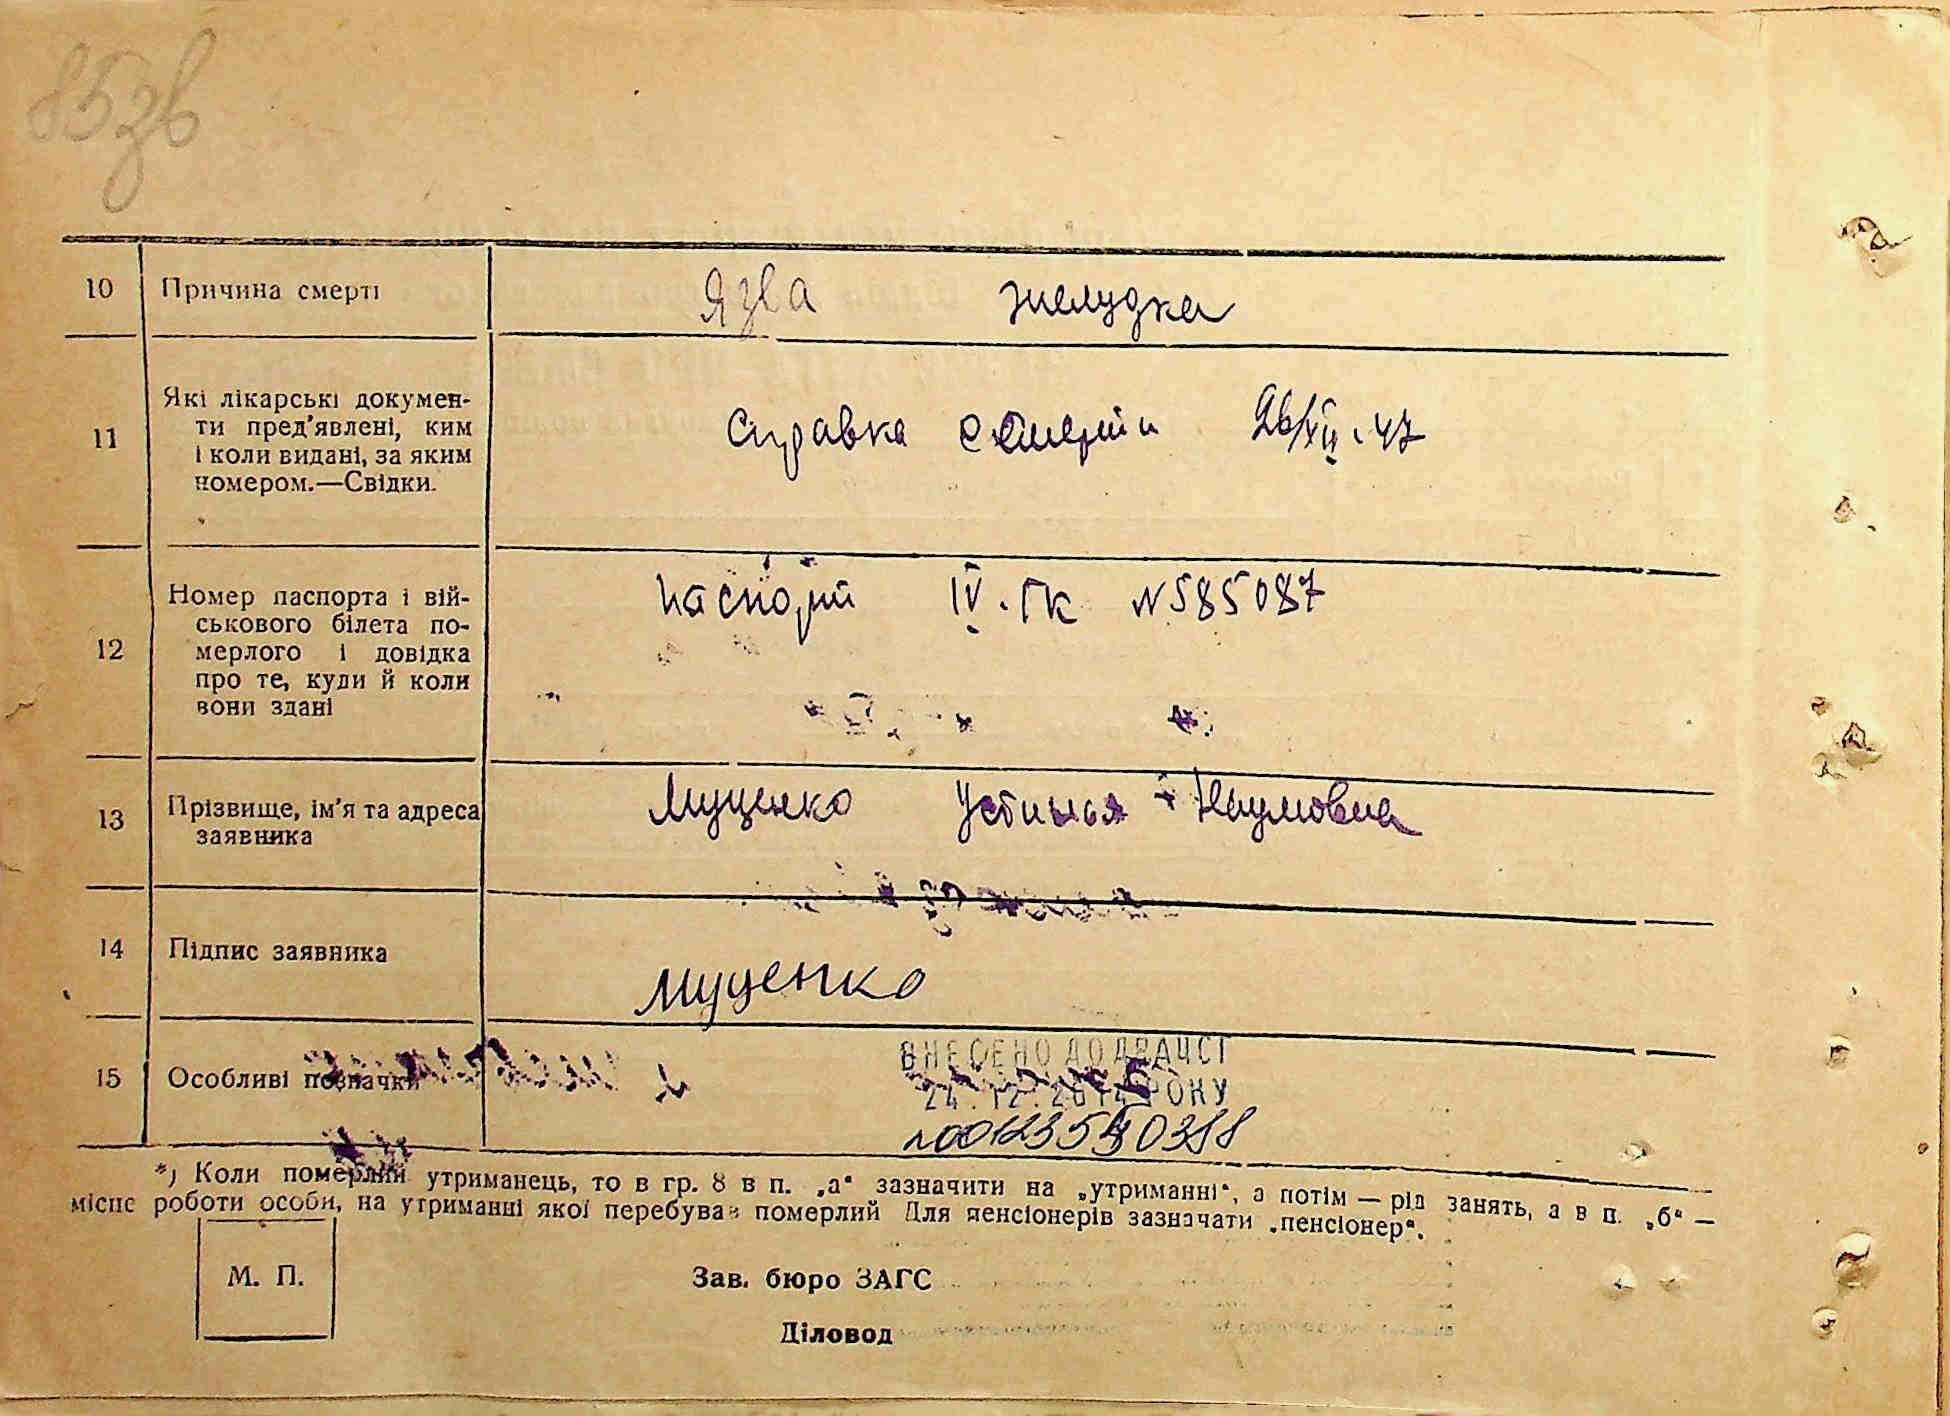 85зв
10 Причина смерті Язва желудка
11 Які лікарські докумен-
ти пред'явлені, ким
і коли видані, за яким
номером.—Свідки.
Справка о смерти 26/XII.47
12 Номер паспорта і вій-
ськового білета по-
мерлого і довідка
про те, куди й коли
вони здані
паспорт IV.ГК №585087
13 Прізвище, ім'я та адреса
заявника
Муценко Устинья Наумовна
14 Підпис заявника Муценко
15 Особливі позначки
ВНЕСЕНО ДО ДРАЦСГ
24.12.2014 РОКУ
*) Коли померлий утриманець, то в гр. 8 в п. „а“ зазначити на „утриманні“, а потім — рід занять, а в п. „б“ —
місце роботи особи, на утриманні якої перебував померлий Для пенсіонерів зазначати „пенсіонер“.
М. П.
Зав. бюро ЗАГС
Діловод